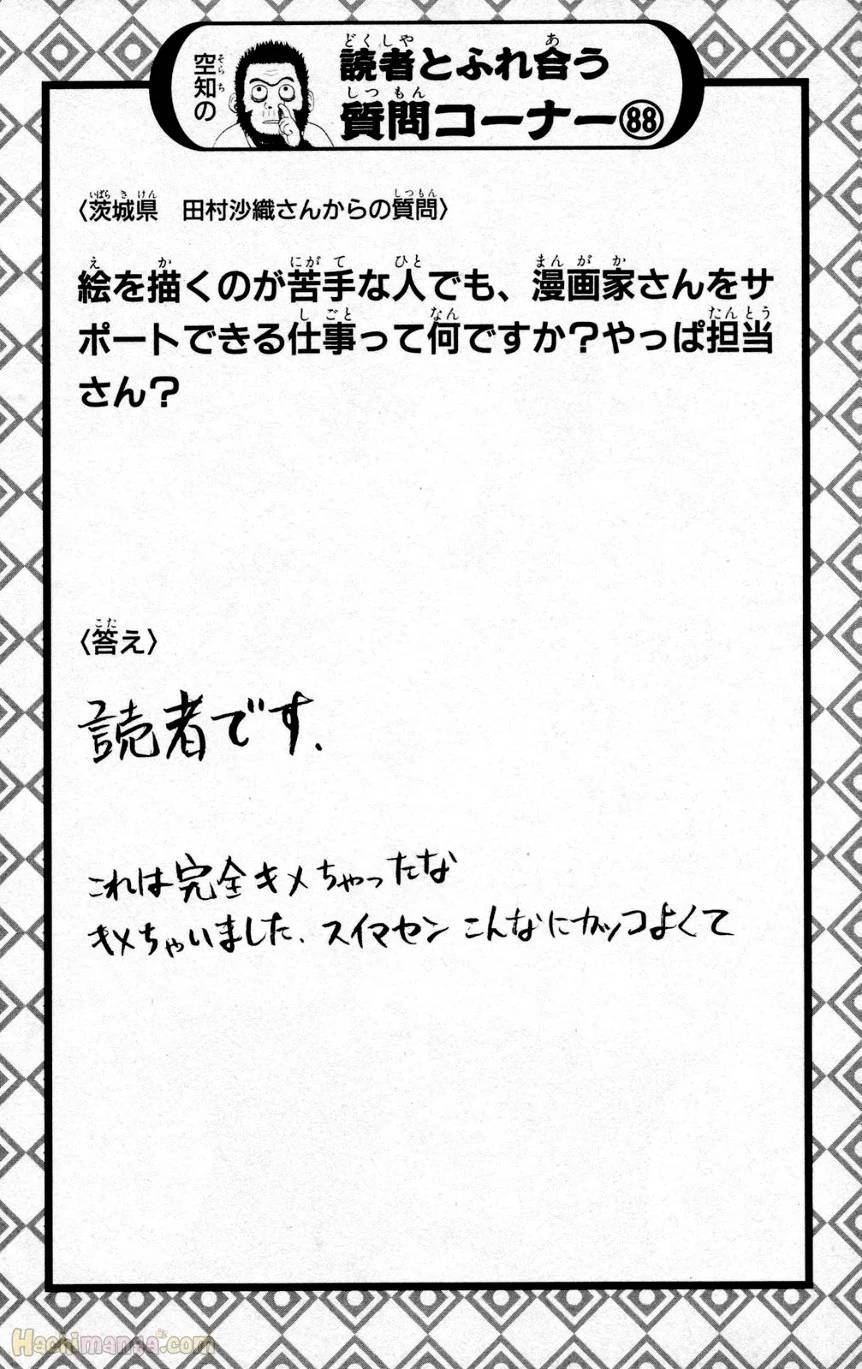 空知の
読者とふれ合う
質問コーナー88
〈茨城県 田村沙織さんからの質問〉
絵を描くのが苦手な人でも、漫画家さんをサ
ポートできる仕事って何ですか?やっぱ担当
さん?
〈答え〉
読者です.
これは完全キメちゃったな
キメちゃいました. スイマセン こんなにカッコよくて
Hachimanga.com